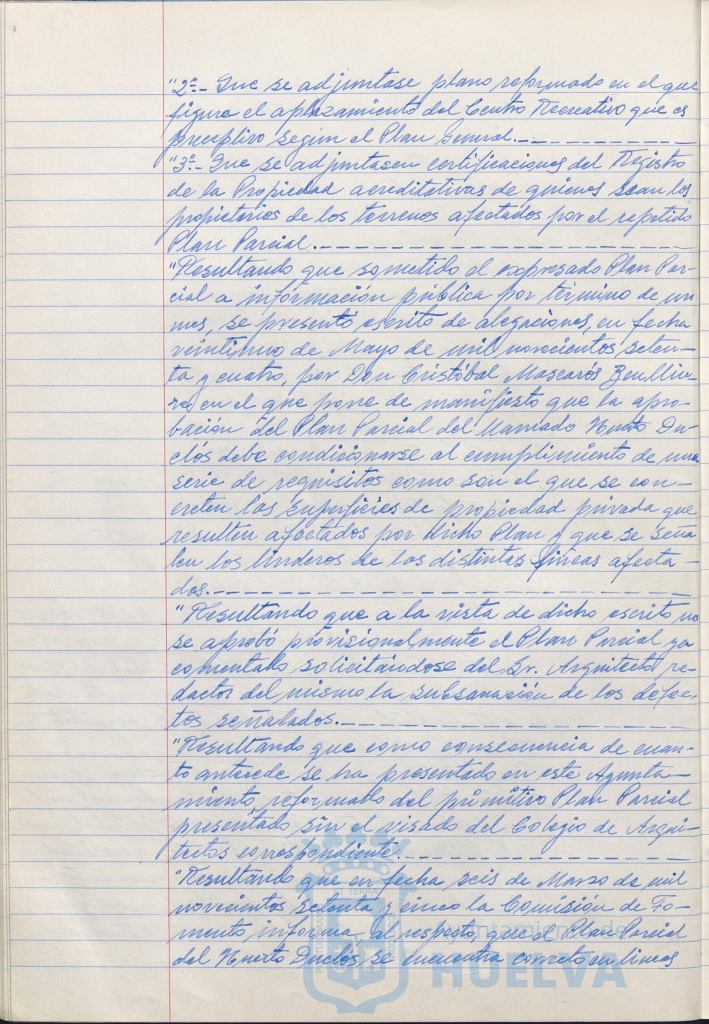 "2º.- Que se adjuntase plano reformado en el que
figura el aplazamiento del Centro Recreativo que es
preceptivo según el Plan General.
"3º.- Que se adjuntasen certificaciones del Registro
de la Propiedad acreditativas de quienes sean los
propietarios de los terrenos afectados por el repetido
Plan Parcial.
"Resultando que sometido el expresado Plan Par-
cial a información pública por término de un
mes, se presentó escrito de alegaciones, en fecha
veintiuno de Mayo de mil novecientos seten-
ta y cuatro, por Don Cristóbal Mascarós Benlliu-
re, en el que pone de manifiesto que la apro-
bación del Plan Parcial del llamado Huerto Du-
clós debe condicionarse al cumplimiento de una
serie de requisitos como son el que se con-
creten las superficies de propiedad privada que
resulten afectados por dicho Plan y que se seña
len los linderos de las distintas fincas afecta-
das.
"Resultando que a la vista de dicho escrito no
se aprobó provisionalmente el Plan Parcial ya
comentado solicitándose del Sr. Arquitecto re-
dactor del mismo la subsanación de los defec
tos señalados.
"Resultando que como consecuencia de cuan-
to antecede se ha presentado en este Ayunta-
miento, reformado del primitivo Plan Parcial
presentado, sin el visado del Colegio de Arqui-
tectos correspondiente.
"Resultando que en fecha seis de Marzo de mil
novecientos setenta y cinco la Comisión de Fo-
mento informa, al respecto, que el Plan Parcial
del Huerto Duclós se encuentra correcto en lineas
Ayuntamiento de
HUELVA